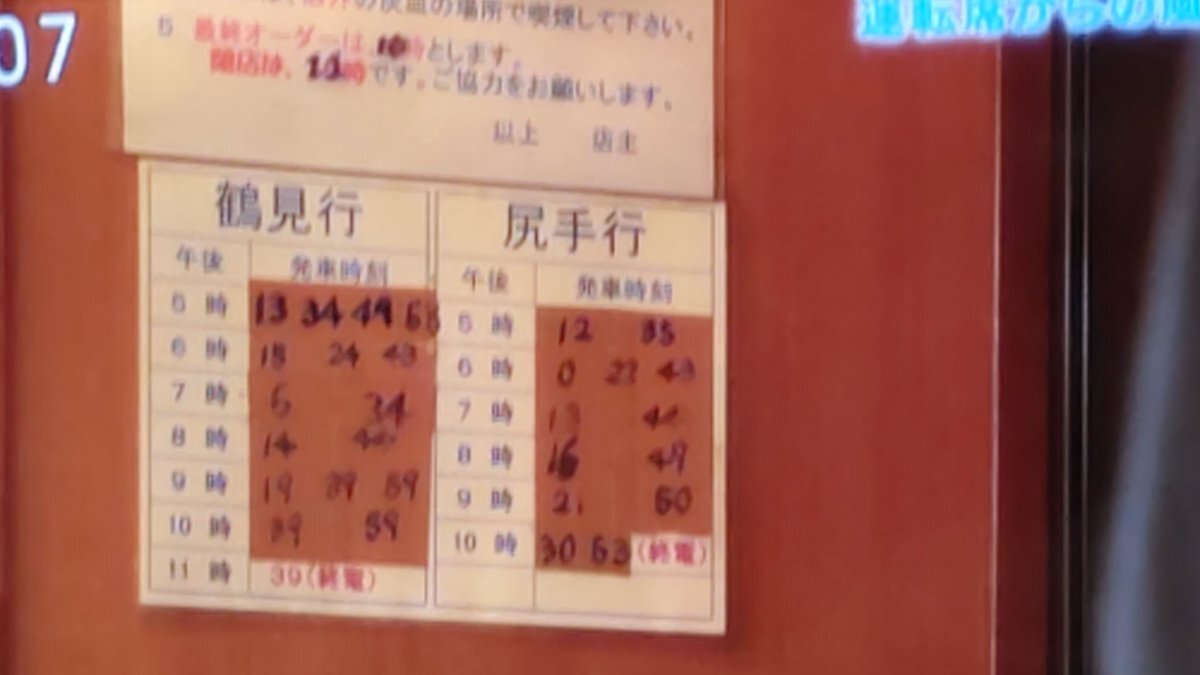 07
運転席からの
の灰皿の場所で喫煙して下さい。
5 最終オーダーは、10時とします。
閉店は、時です。ご協力をお願いします。
以上 店主
鶴見行
午後 発車時刻
5 時 13 34 49 58
6 時 15 24 43
7 時 34
8 時 14
9 時 19 39 59
10 時 39 59
11 時 39(終電)
尻手行
午後 発車時刻
5 時 12 35
6 時 0 43
7 時 13
8 時 16 49
9 時 50
10 時 30 53(終電)